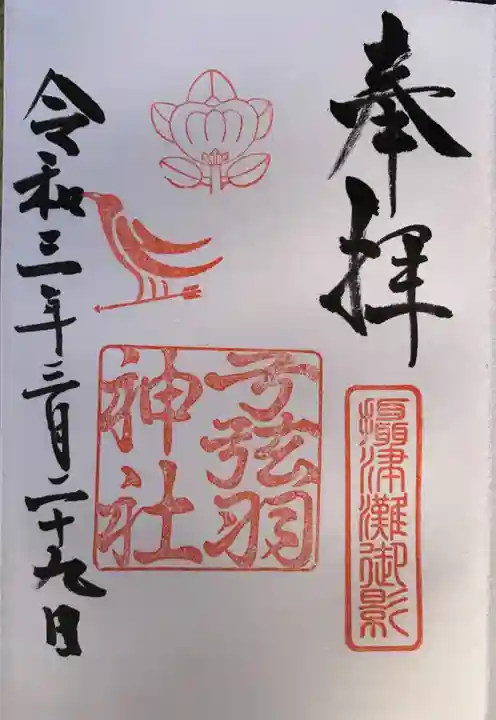 奉拝
摂津灘御影
弓弦羽
神社
令和三年三月二十九日